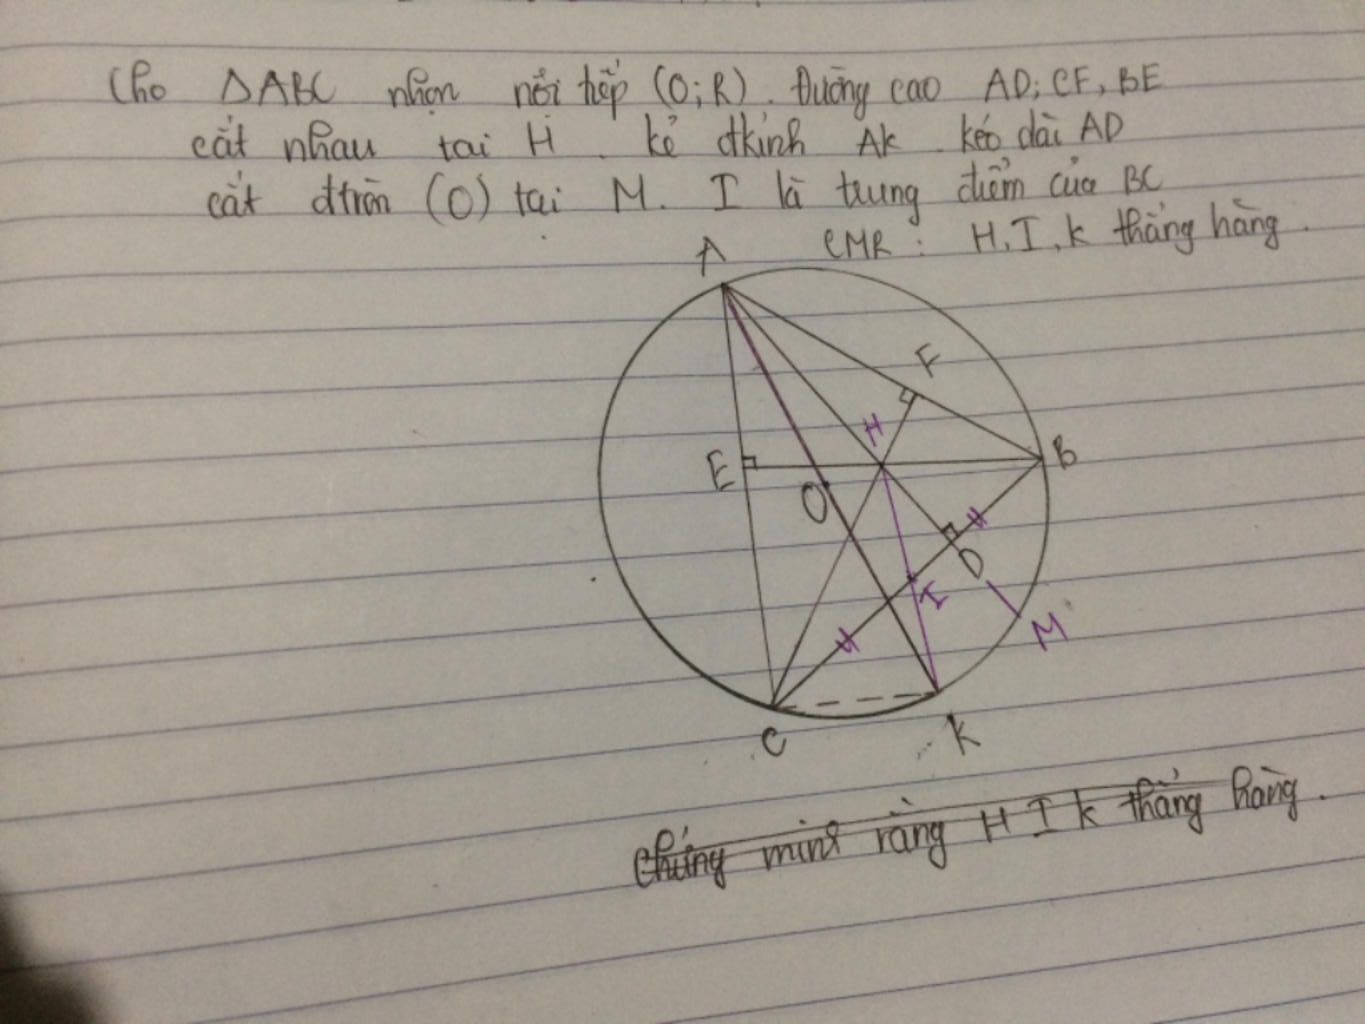 Cho ΔABC nhọn nội tiếp (O; R). Đường cao AD; CF, BE
cắt nhau tại H. kẻ đkính AK. kéo dài AD
cắt đtròn (O) tại M. I là trung điểm của BC
CMR: H, I, K thẳng hàng.
A
F
H
E
B
O
D
I
M
C
K
Chứng minh rằng H I K thẳng hàng.